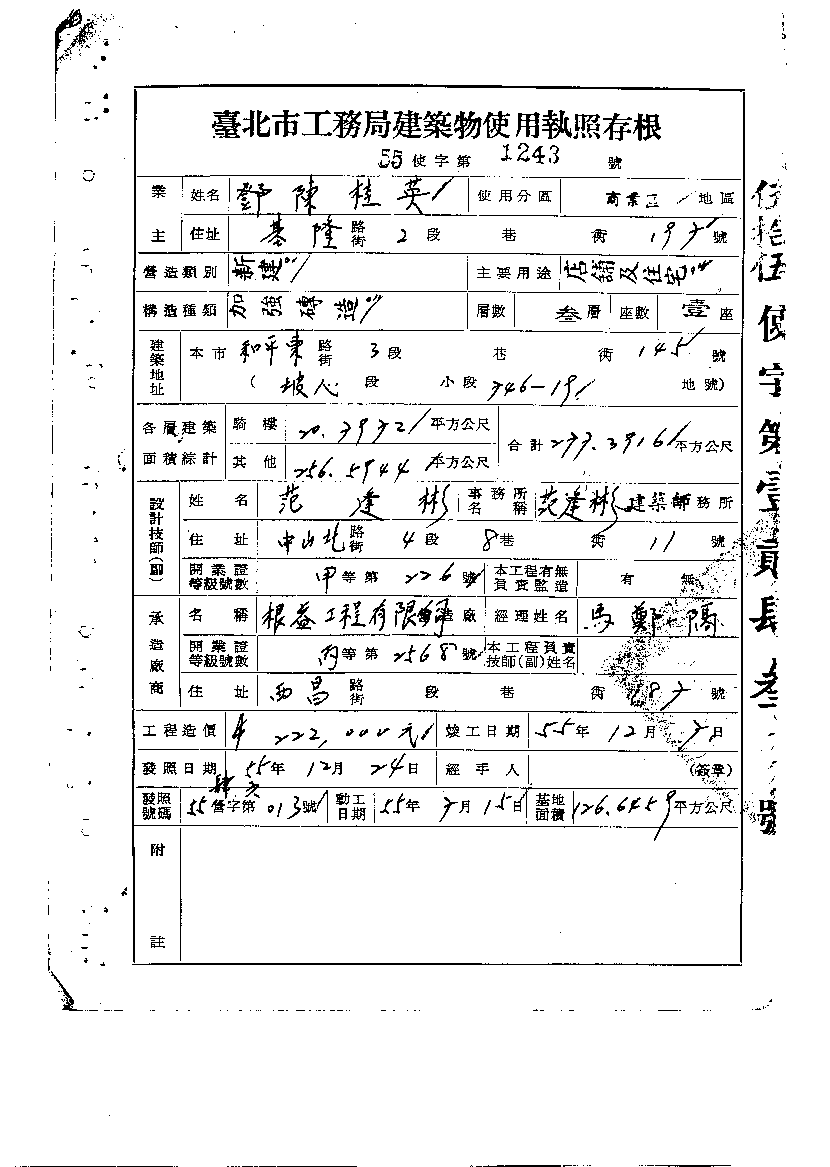 臺北市工務局建築物使用執照存根
55 使字第 1243 號
業主 姓名 鄧陳桂英 使用分區 商業區 地區
住址 基隆 路街 2 段 巷 街 號
營造類別 新建 主要用途 店舖及住宅
構造種類 加強磚造 層數 叁層 座數 壹座
建築地址 本市 和平東 路街 3 段 巷 街 145 號
( 坡心 段 小段 346-19 地號)
各層建築面積綜計 騎樓 平方公尺 合計 平方公尺
其他 256.5944 平方公尺
設計技師(副) 姓名 范逢彬 事務所名稱 范逢彬建築師務所
住址 中山北 路街 4 段 8 巷 街 11 號
開業證等級號數 甲等第 226 號 本工程有無負責監造 有 無
承造廠商 名稱 根益工程有限 造廠 經理姓名 馬鄭
開業證等級號數 丙等第 2568 號 本工程負責技師(副)姓名
住址 西昌 路街 段 巷 街 號
工程造價 222,000元 竣工日期 55年 12月 日
發照日期 55年 12月 24日 經手人 (簽章)
發照號碼 55營字第 013號 動工日期 55年 月 15日 基地面積 126.6459平方公尺
附註
伍拾伍使字第壹貳肆叁號